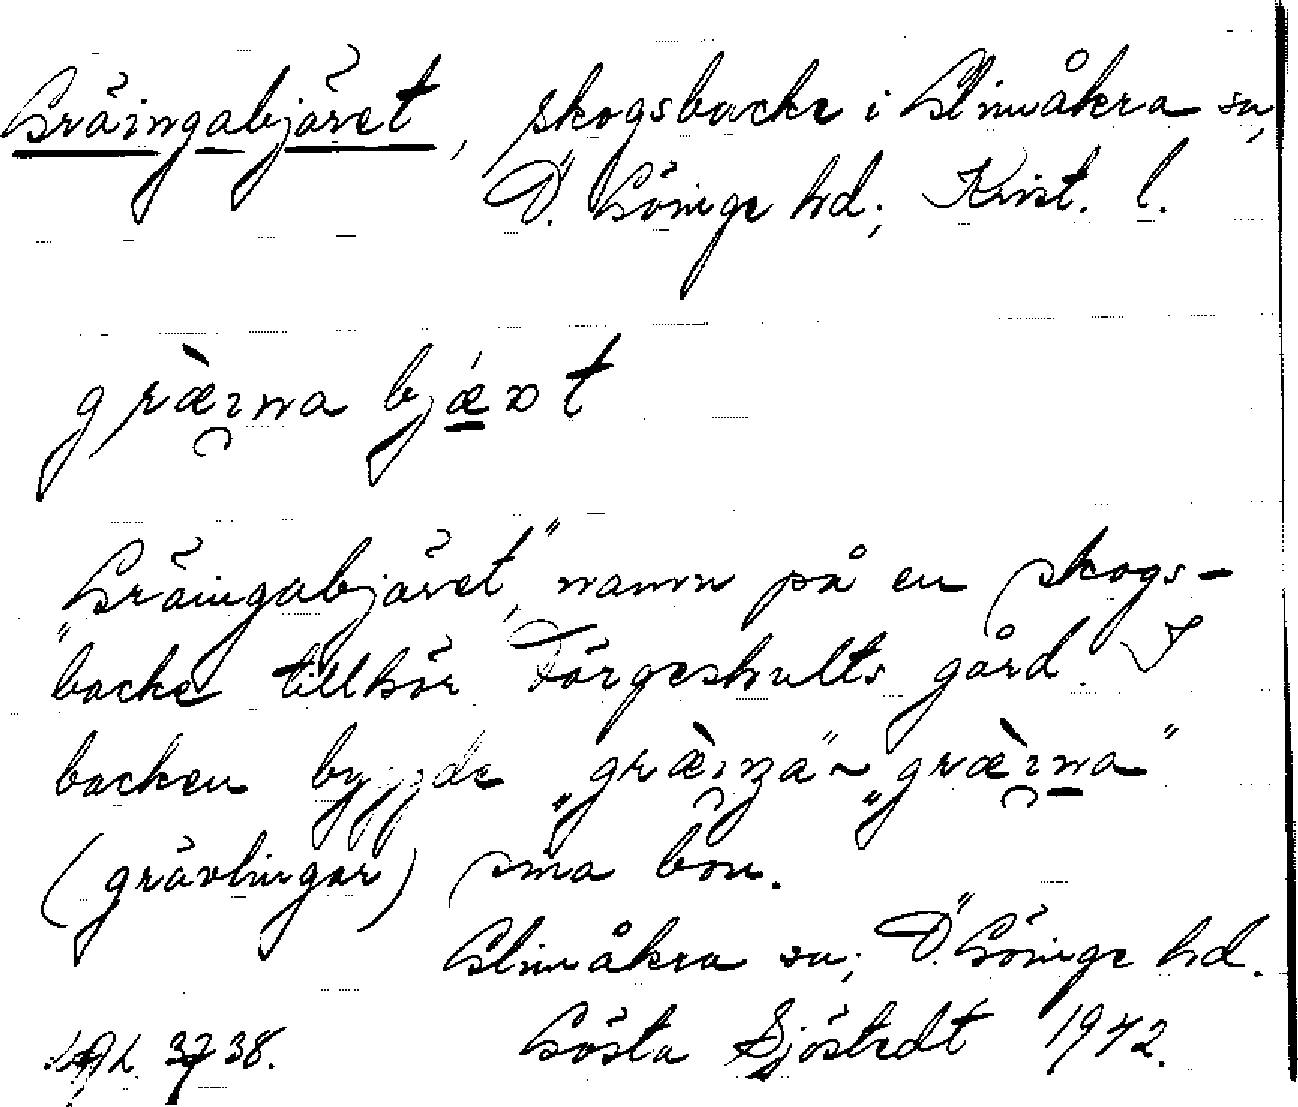 Gräingabjäret, skogsbacke i Glimåkra sn,
Ö. Göinge hd; Krist. l.
græ̀ı̯ŋa bjǽrət
"Gräingabjäret", namn på en skogs-
backe tillhör Törgeshults gård. I
backen byggde "græ̀ı̯ŋa" ~ "græ̀ı̯ŋa"
(grävlingar) sina bon.
Glimåkra sn; Ö. Göinge hd.
3738. Gösta Sjöstedt 1942.